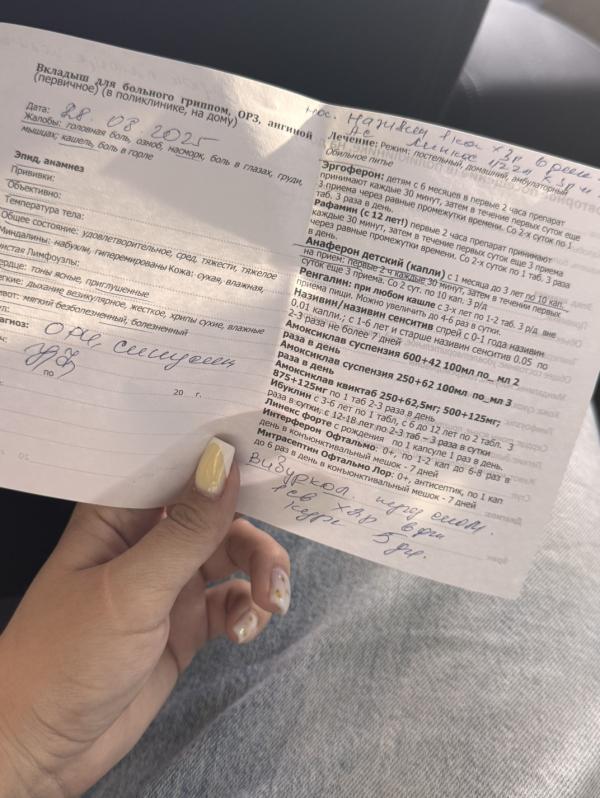 Вкладыш для больного гриппом, ОРЗ, ангиной
(первичное) (в поликлинике, на дому)
Дата: 28.03.2025
Жалобы: головная боль, озноб, насморк, боль в глазах, груди,
мышцах; кашель, боль в горле
Эпид, анамнез
Прививки:
Объективно:
Температура тела:
Общее состояние: удовлетворительное, сред, тяжести, тяжелое
Миндалины: набухли, гиперемированы Кожа: сухая, влажная,
чистая Лимфоузлы:
Сердце: тоны ясные, приглушенные
Легкие: дыхание везикулярное, жесткое, хрипы сухие, влажные
Живот: мягкий безболезненный, болезненный
Диагноз: ОРИ,
по
20 г.
Називин 1 кап х 3р
Лечение: Режим: постельный, домашний, амбулаторный
Обильное питье
Эргоферон: детям с 6 месяцев в первые 2 часа препарат
принимают каждые 30 минут, затем в течение первых суток еще
3 приема через равные промежутки времени. Со 2-х суток по 1
таб. 3 раза в день.
Рафамин (с 12 лет!) первые 2 часа препарат принимают
каждые 30 минут, затем в течение первых суток еще 3 приема
через равные промежутки времени. Со 2-х суток по 1 таб. 3 раза
в день.
Анаферон детский (капли) с 1 месяца до 3 лет по 10 кап.
на прием: первые 2 ч каждые 30 минут, затем в течении первых
суток еще 3 приема. Со 2 сут. по 10 кап. 3 р/д
Ренгалин: при любом кашле с 3-х лет по 1-2 таб. 3 р/д вне
приема пищи. Можно увеличить до 4-6 раз в сутки.
Називин/називин сенситив спрей с 0-1 года називин
0.01 капли.; с 1-6 лет и старше називин сенситив 0.05 по
2-3 раза не более 7 дней
Амоксиклав суспензия 600+42 100мл по_ мл 2
раза в день
Амоксиклав суспензия 250+62 100мл по_мл 3
раза в день
Амоксиклав квиктаб 250+62,5мг; 500+125мг;
875+125мг по 1 таб 2-3 раза в день
Ибуклин с 3-6 лет по 1 табл, с 6 до 12 лет по 2 табл. 3
раза в сутки, с 12-18 лет по 2-3 таб – 3 раза в сутки
Линекс форте с рождения по 1 капсуле 1 раз в день.
Интерферон Офтальмо: 0+, по 1-2 кап до 6-8 раз в
день в конъюнктивальный мешок - 7 дней
Митрасептин Офтальмо Лор: 0+, антисептик, по 1 кап
до 6 раз в день в конъюнктивальный мешок - 7 дней
Визуркол
1св х 3р
5 дн.